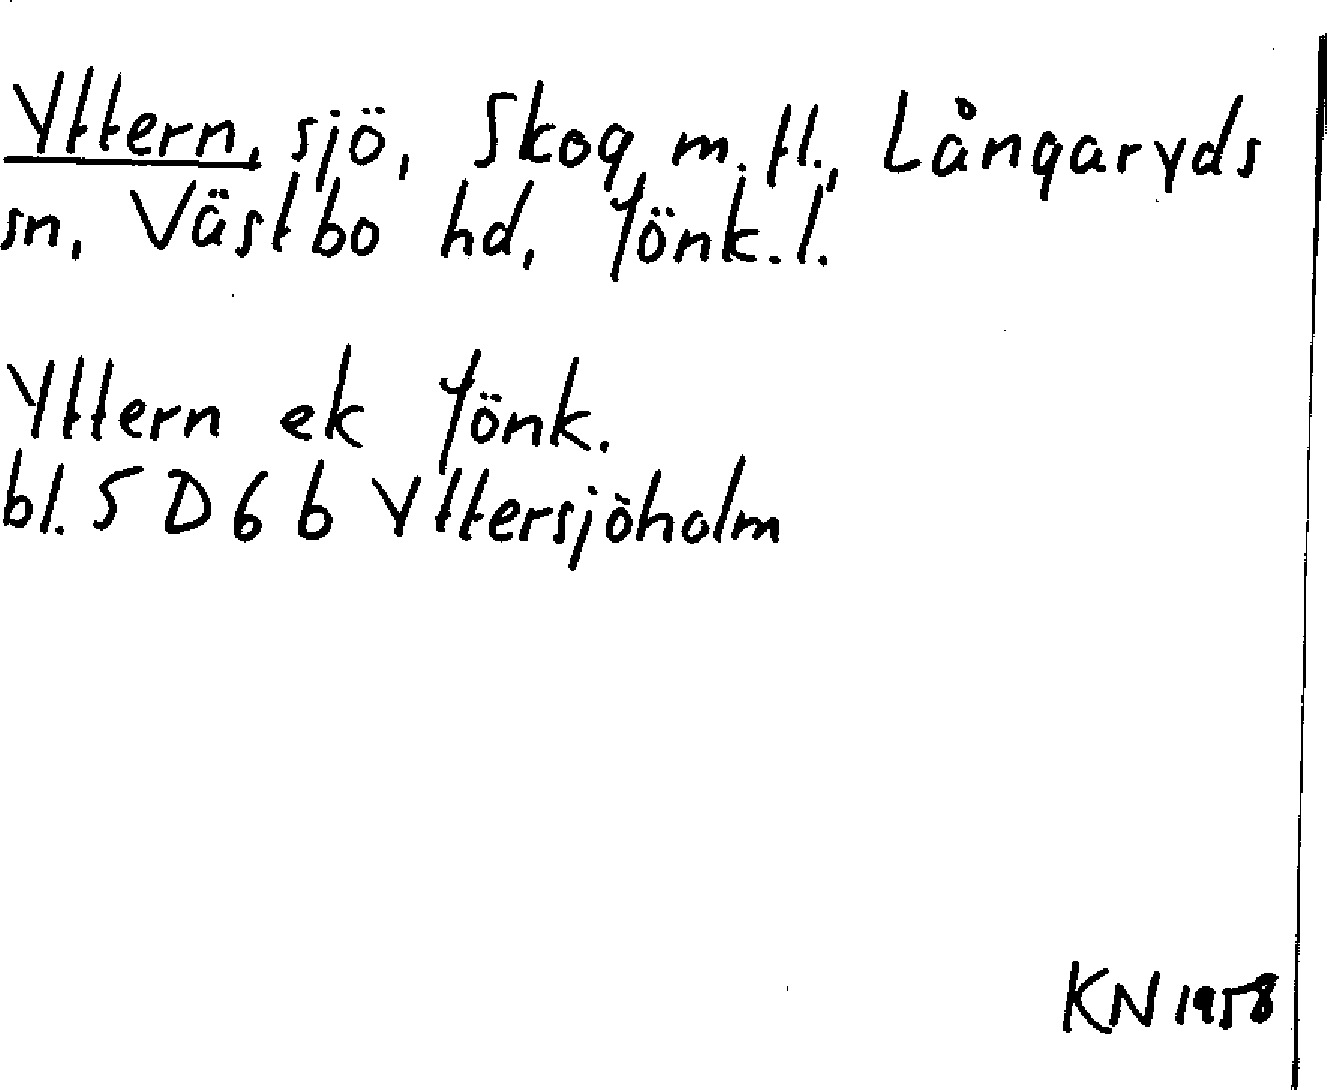 Yttern, sjö, Skog m.fl., Långaryds
sn, Västbo hd, Jönk.l.
Yttern ek Jönk.
bl. 5 D 6 b Yttersjöholm
KN 1958